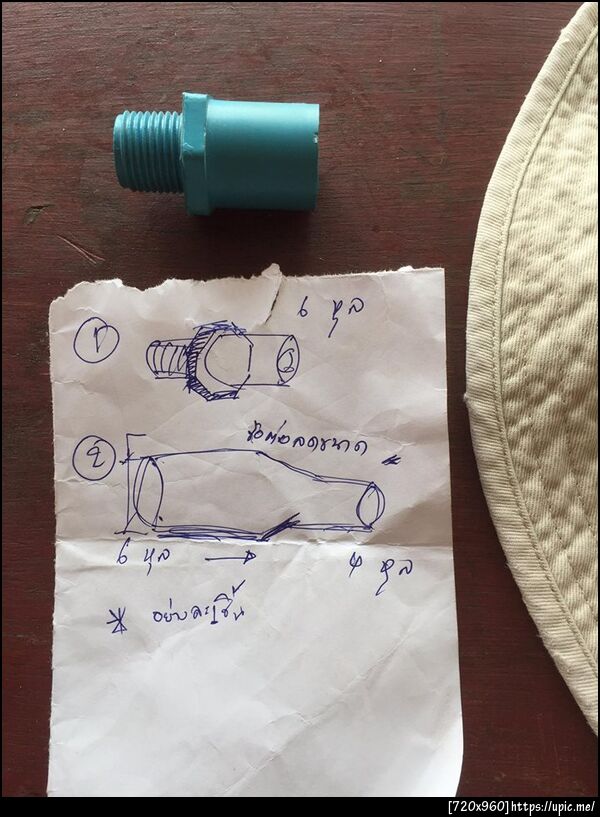 ๑
๖ หุล
๒
ข้อต่อลดขนาด
๖ หุล → ๔ หุล
* อย่างละ 1 ชิ้น
[720x960]https://upic.me/